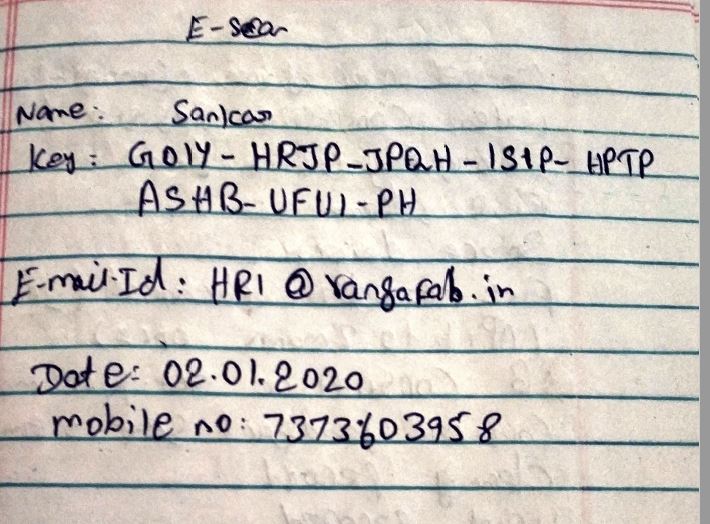 E-Scan
Name: Sankar
Key: G01Y-HRJP-JPQH-1S1P-HPTP
ASHB-UFU1-PH
E-mail-Id: HR1@rangafab.in
Date: 02.01.2020
mobile no: 7373603958